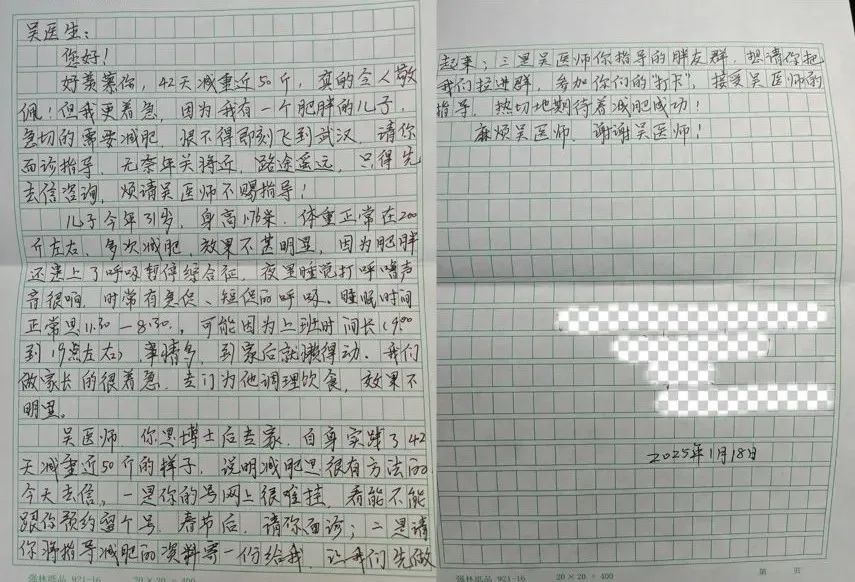 吴医生：
您好！
好羡慕你，42天减重近50斤，真的令人敬
佩！但我更着急，因为我有一个肥胖的儿子，
急切的需要减肥，恨不得即刻飞到武汉，请你
面诊指导，无奈年关将近，路途遥远，只得先
去信咨询，烦请吴医师不赐指导！
儿子今年31岁，身高1.76米，体重正常在200
斤左右，多次减肥，效果不甚明显，因为肥胖
还患上了呼吸暂停综合征，夜里睡觉打呼噜声
音很响，时常有急促、短促的呼吸。睡眠时间
正常是11.30—8.30，可能因为上班时间长（9:00
到19点左右），事情多，到家后就懒得动，我们
做家长的很着急，专门为他调理饮食，效果不
明显。
吴医师，你是博士后专家，自身实践了42
天减重近50斤的样子，说明减肥是很有方法的
今天去信，一是你的号网上很难挂，看能不能
跟你预约个号，春节后，请你面诊；二是请
你将指导减肥的资料寄一份给我，让我们先做
起来；三是吴医师你指导的胖友群，想请你把
我们拉进群，参加你们的“打卡”，接受吴医师的
指导，热切地期待着减肥成功！
麻烦吴医师，谢谢吴医师！
2025年1月18日
强林纸品 921-16 20×20=400
强林纸品 921-16 20×20=400 第 页